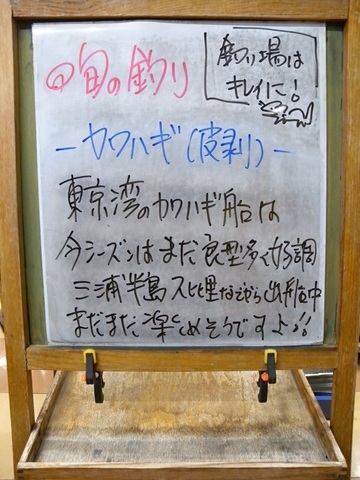 旬の釣り
釣り場は
キレイに!
－カワハギ(皮剥)－
東京湾のカワハギ船は
今シーズンはまだ良型多く好調
三浦半島久比里などから出船中
まだまだ楽しめそうですよ!!